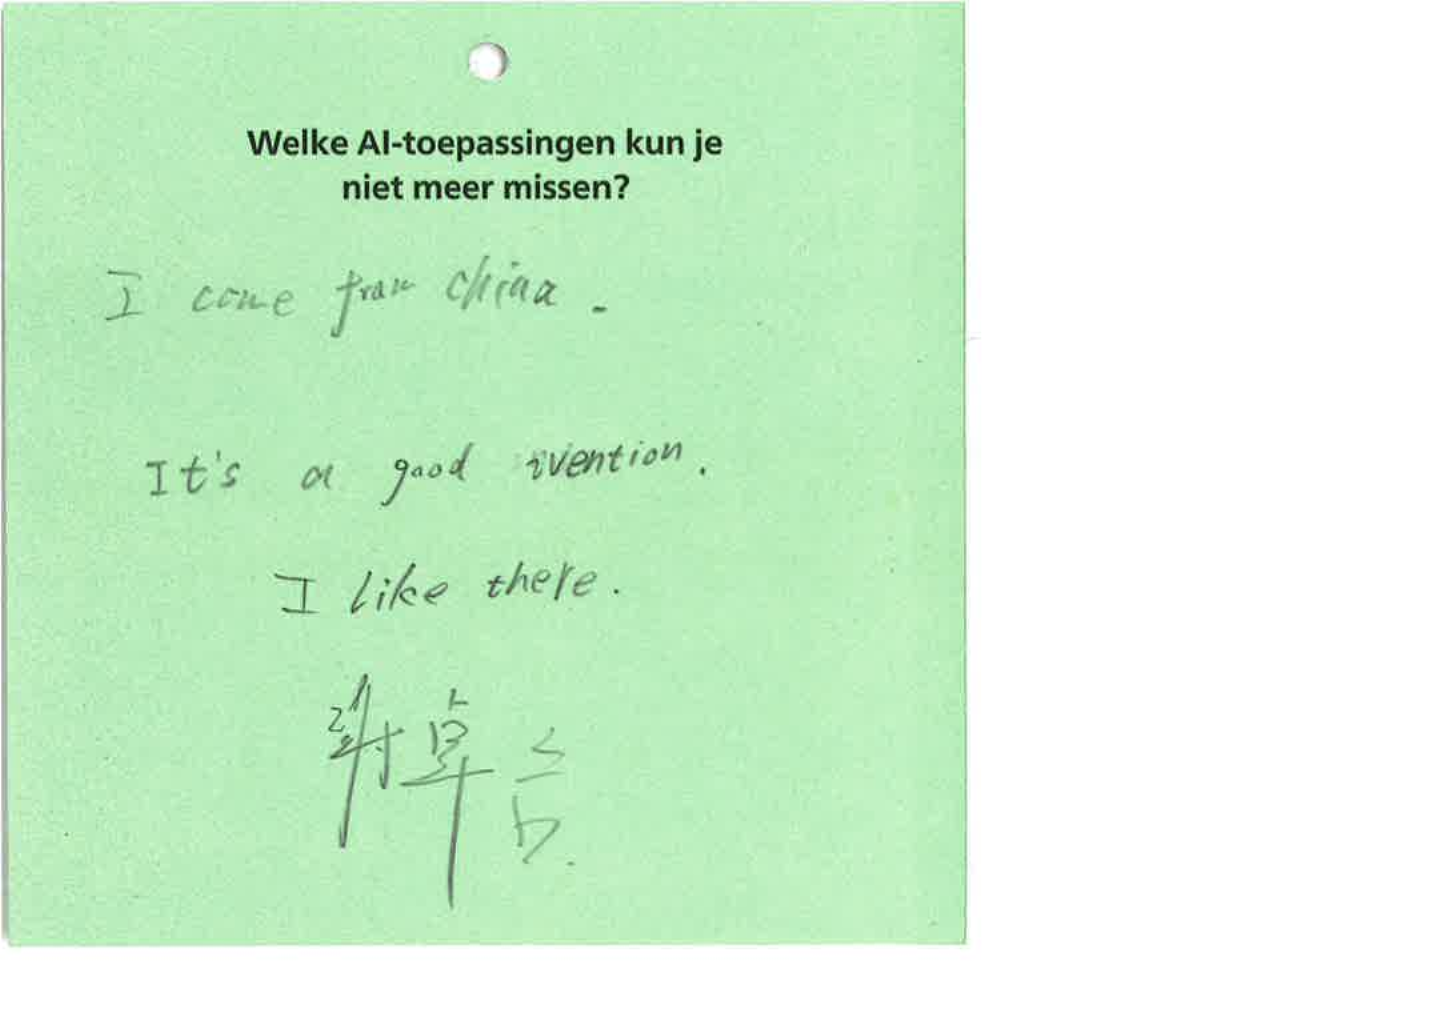 Welke AI-toepassingen kun je
niet meer missen?
I come from china.
It's a good ivention.
I like there.